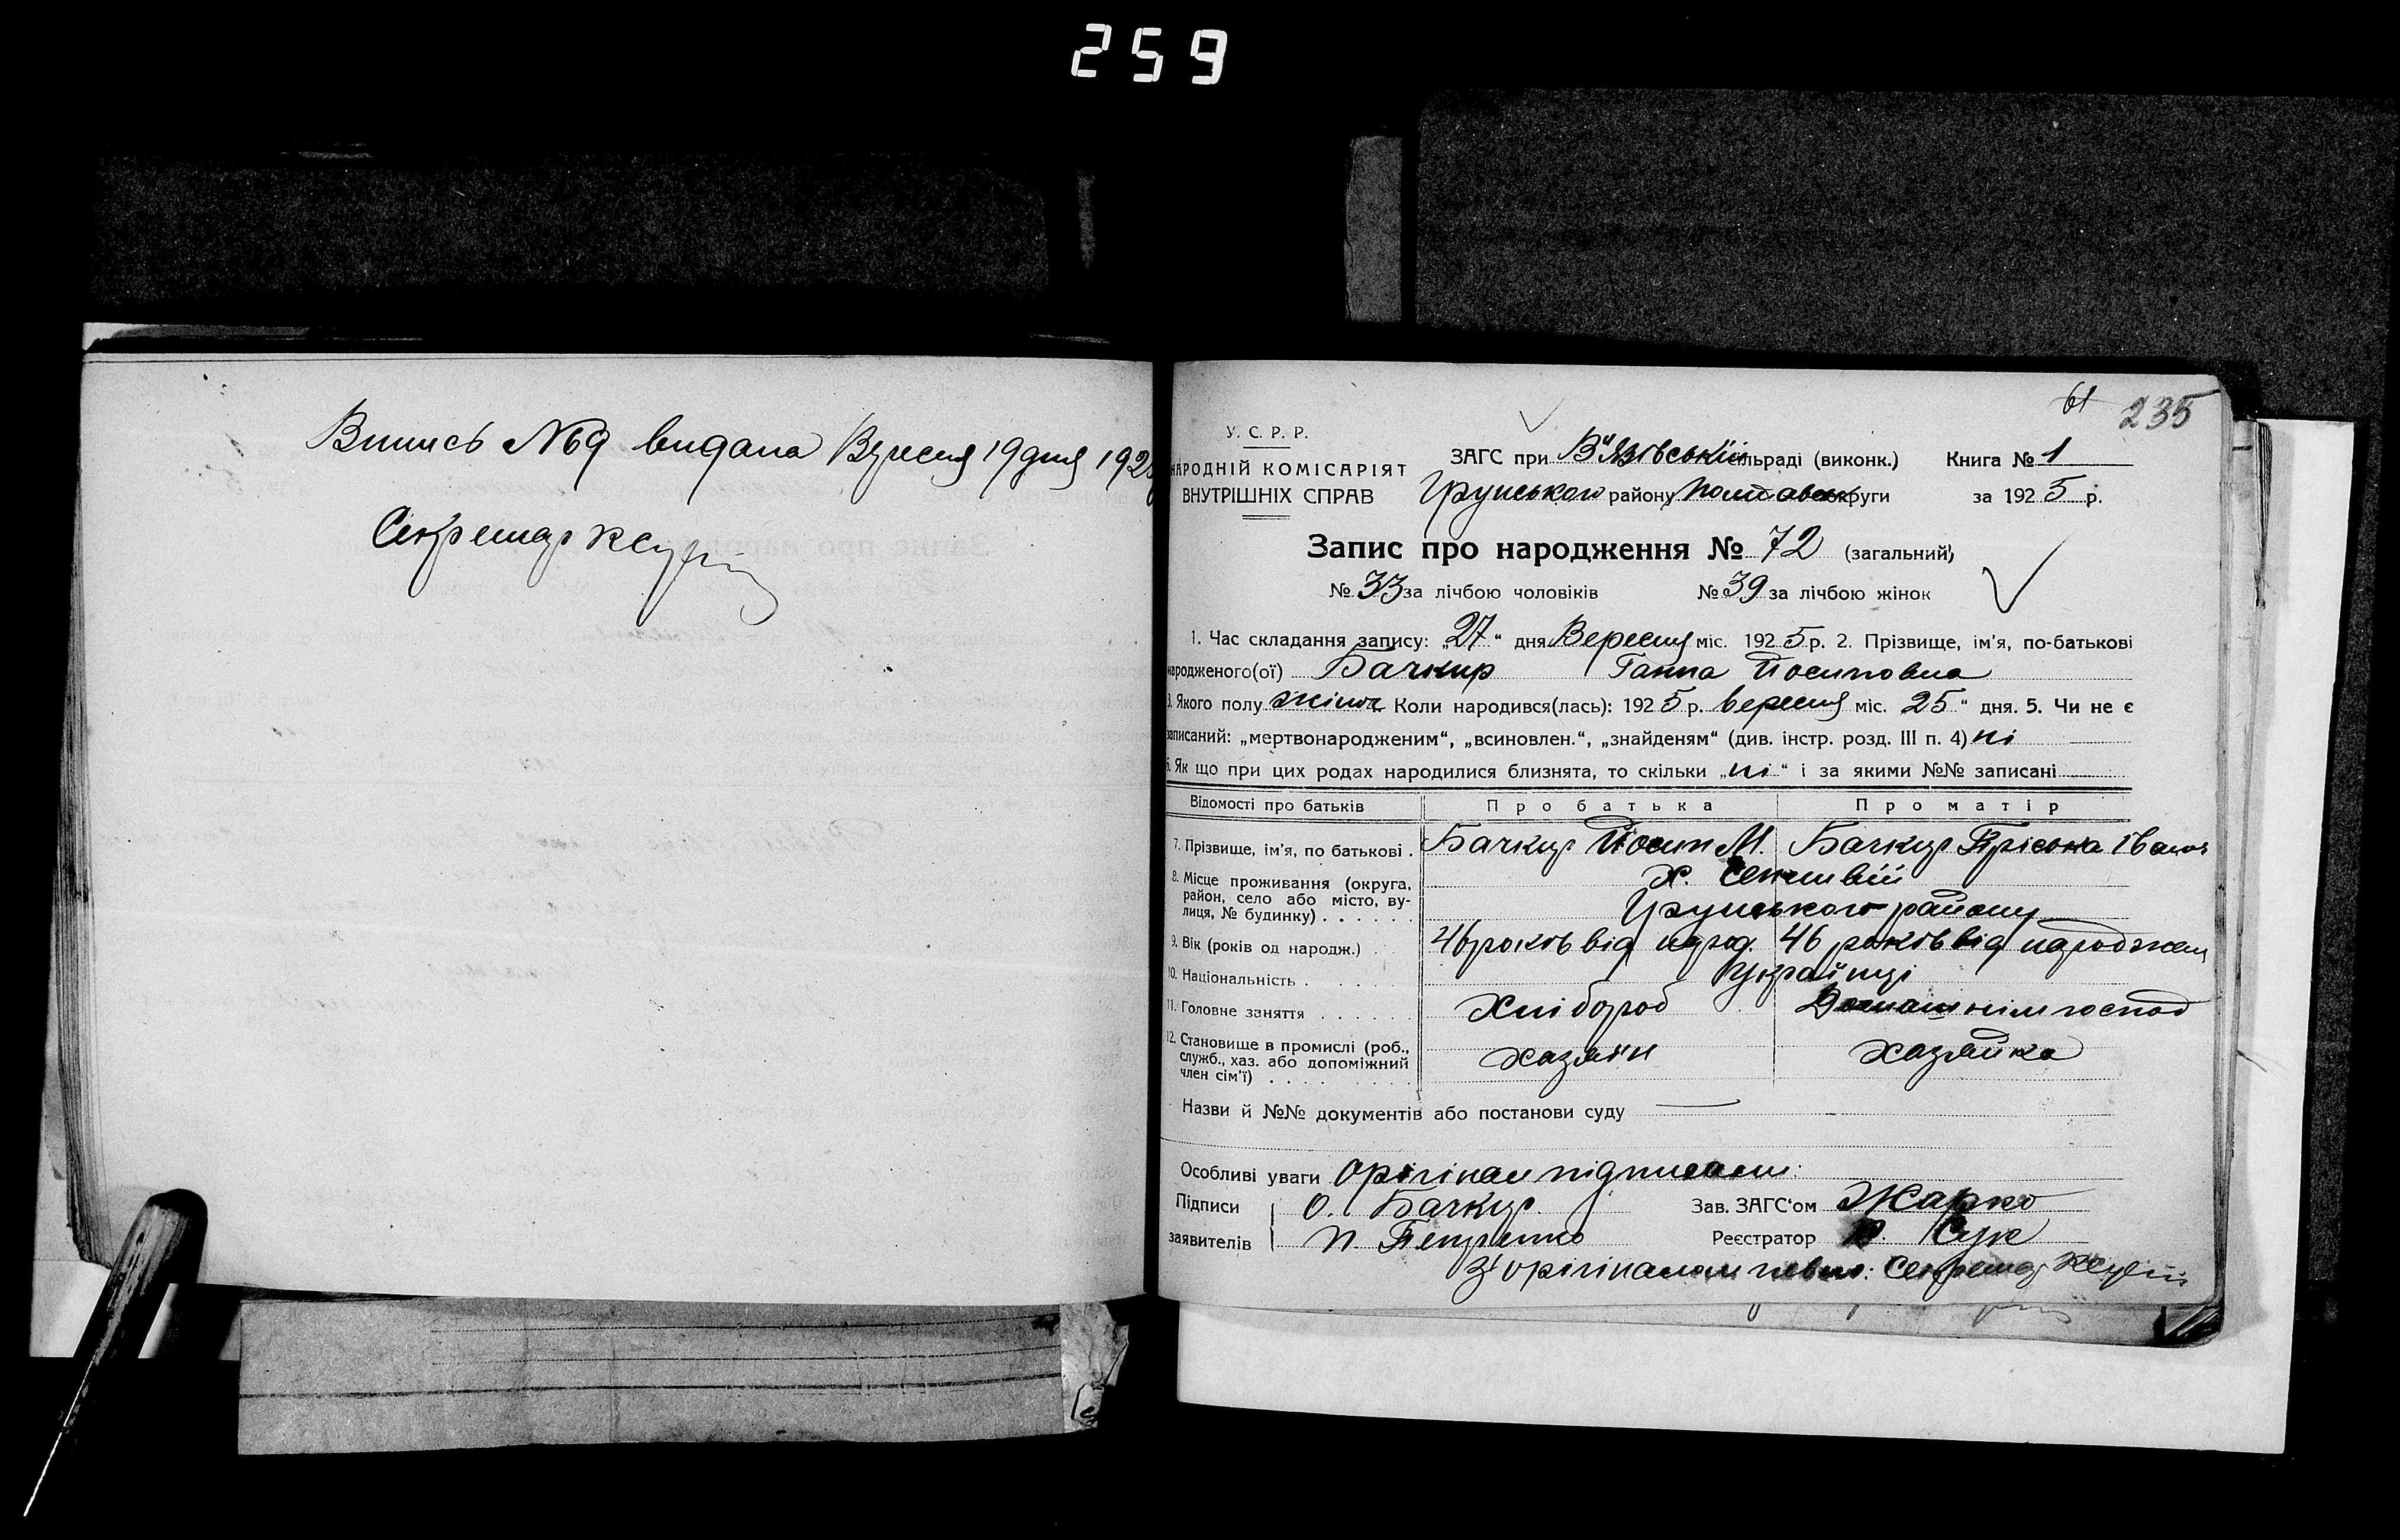 259
Випись №69 видана Вересня 19 дня 192
Секретар
61 235
У. С. Р. Р.
НАРОДНІЙ КОМІСАРІЯТ
ВНУТРІШНІХ СПРАВ
ЗАГС при В"язівській сільраді (виконк.) Книга № 1
Грунського району Полтавськ округи за 1925 р.
Запис про народження № 72 (загальний)
№ 33 за лічбою чоловіків № 39 за лічбою жінок
1. Час складання запису: „27“ дня Вересня міс. 1925 р. 2. Прізвище, ім'я, по-батькові
народженого(ої) Бачкир Ганна Йосиповна
3. Якого полу жіноч Коли народився(лась): 1925 р. вересня міс. 25“ дня. 5. Чи не є
записаний: „мертвонародженим“, „всиновлен.“, „знайденям“ (див. інстр. розд. III п. 4) ні
6. Як що при цих родах народилися близнята, то скільки „ні“ і за якими №№ записані
Відомості про батьків Про батька Про матір
7. Прізвище, ім'я, по батькові . Бачкур Йосип М. Бачкур Іванов
8. Місце проживання (округа,
район, село або місто, ву-
лиця, № будинку) . . . . . . х.
Грунського району
9. Вік (років од народж.) . 46 років від народ. 46 років від народжен
10. Національність . . . . . Українці
11. Головне заняття . . . . . . Хлібороб Домашнім господ
12. Становище в промислі (роб.,
служб., хаз. або допоміжний
член сім'ї) . . . . хазяїн хазяйка
Назви й №№ документів або постанови суду
Особливі уваги Орігінал підписали:
Підписи О. Бачкур Зав. ЗАГС'ом Жарко
заявителів П. Петренко Реєстратор Сук
З орігіналом певно: Секретар